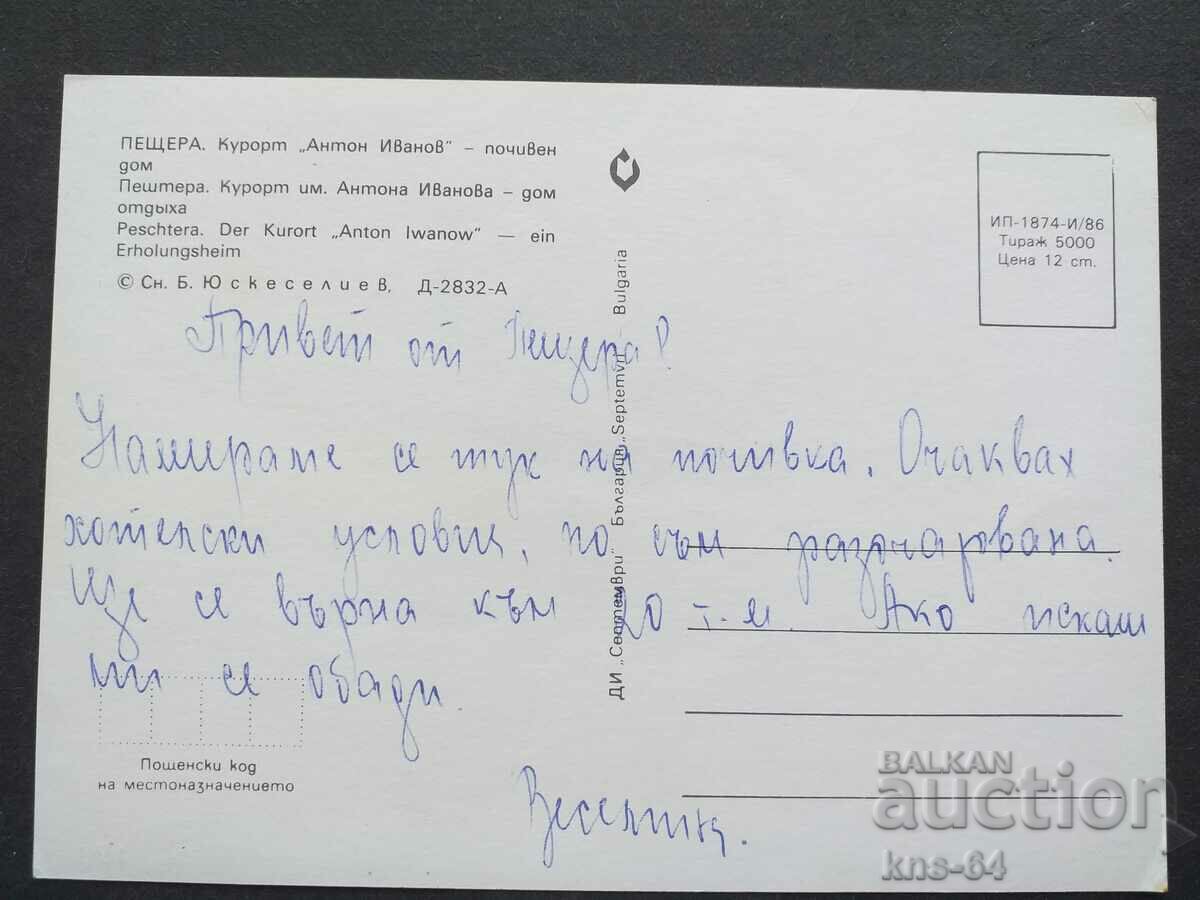 ПЕЩЕРА. Курорт „Антон Иванов" – почивен
дом
Пештера. Курорт им. Антона Иванова – дом
отдыха
Peschtera. Der Kurort „Anton Iwanow" — ein
Erholungsheim
© Сн. Б. Юскеселиев, Д-2832-А
ИП-1874-И/86
Тираж 5000
Цена 12 ст.
ДИ „Септември" България „Septemvri" Bulgaria
Привет от Пещера!
Намираме се тук на почивка. Очаквах
хотелски условия, но съм разочарована.
Ще се върна към 20 т.м. Ако искаш
ми се обади.
Веселина.
Пощенски код
на местоназначението
BALKAN
auction
kns-64